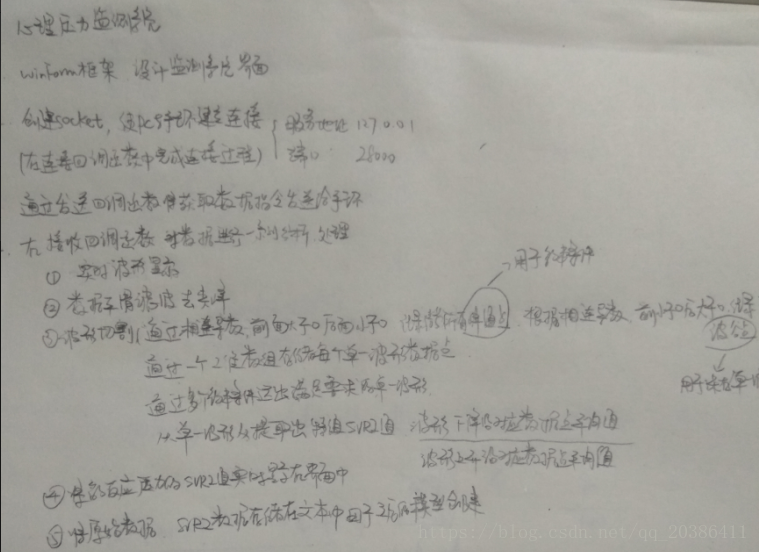 心理压力监测系统
winform框架 设计监测系统界面
创建socket，使pc与手环建立连接 服务地址 127.0.0.1
(在连接回调函数中完成连接过程) 端口 28000
通过发送回调函数将获取数据指令发送给手环
在接收回调函数 对数据进行一系列分析、处理
① 实时波形显示
用于约束条件
② 数据平滑滤波去噪
③ 波形切割(通过相连导数，前面大于0后面小于0 保存 根据相连导数，前小于0后大于0，保存
波谷点
通过一个2维数组存储每个单一波形数据点
用于
通过多个约束条件选出满足要求的单一波形
从单一波形从提取出特征SVR2值 波形下降沿对应数据点平均值
波形上升沿对应数据点平均值
④ 将能反应压力的SVR2值实时显示在界面中
⑤ 将原始数据 SVR2数据存储在文本中用于之后的模型创建
https://blog.csdn.net/qq_20386411